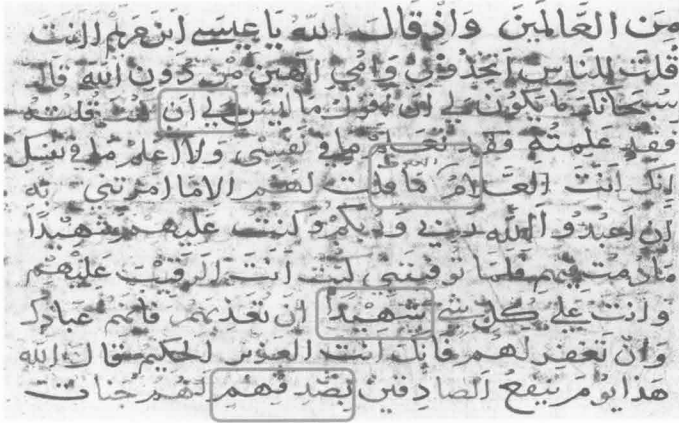 من العالمين واذ قال الله يا عيسى ابن مريم اانت
قلت للناس اتخذوني وامي الهين من دون الله قال
سبحانك ما يكون لي ان اقول ما ليس لي ان كنت قلته
فقد علمته وقد تعلم ما في نفسي ولا اعلم ما في نفسك
انك انت العلام ما قلت لهم الا ما امرتني به
ان اعبدوا الله ربي وربكم وكنت عليهم شهيدا
ما دمت فيهم فلما توفيتني كنت انت الرقيب عليهم
وانت على كل شيء شهيدا ان تعذبهم فانهم عبادك
وان تغفر لهم فانك انت العزيز الحكيم قال الله
هذا يوم ينفع الصادقين بصدقهم لهم جنات